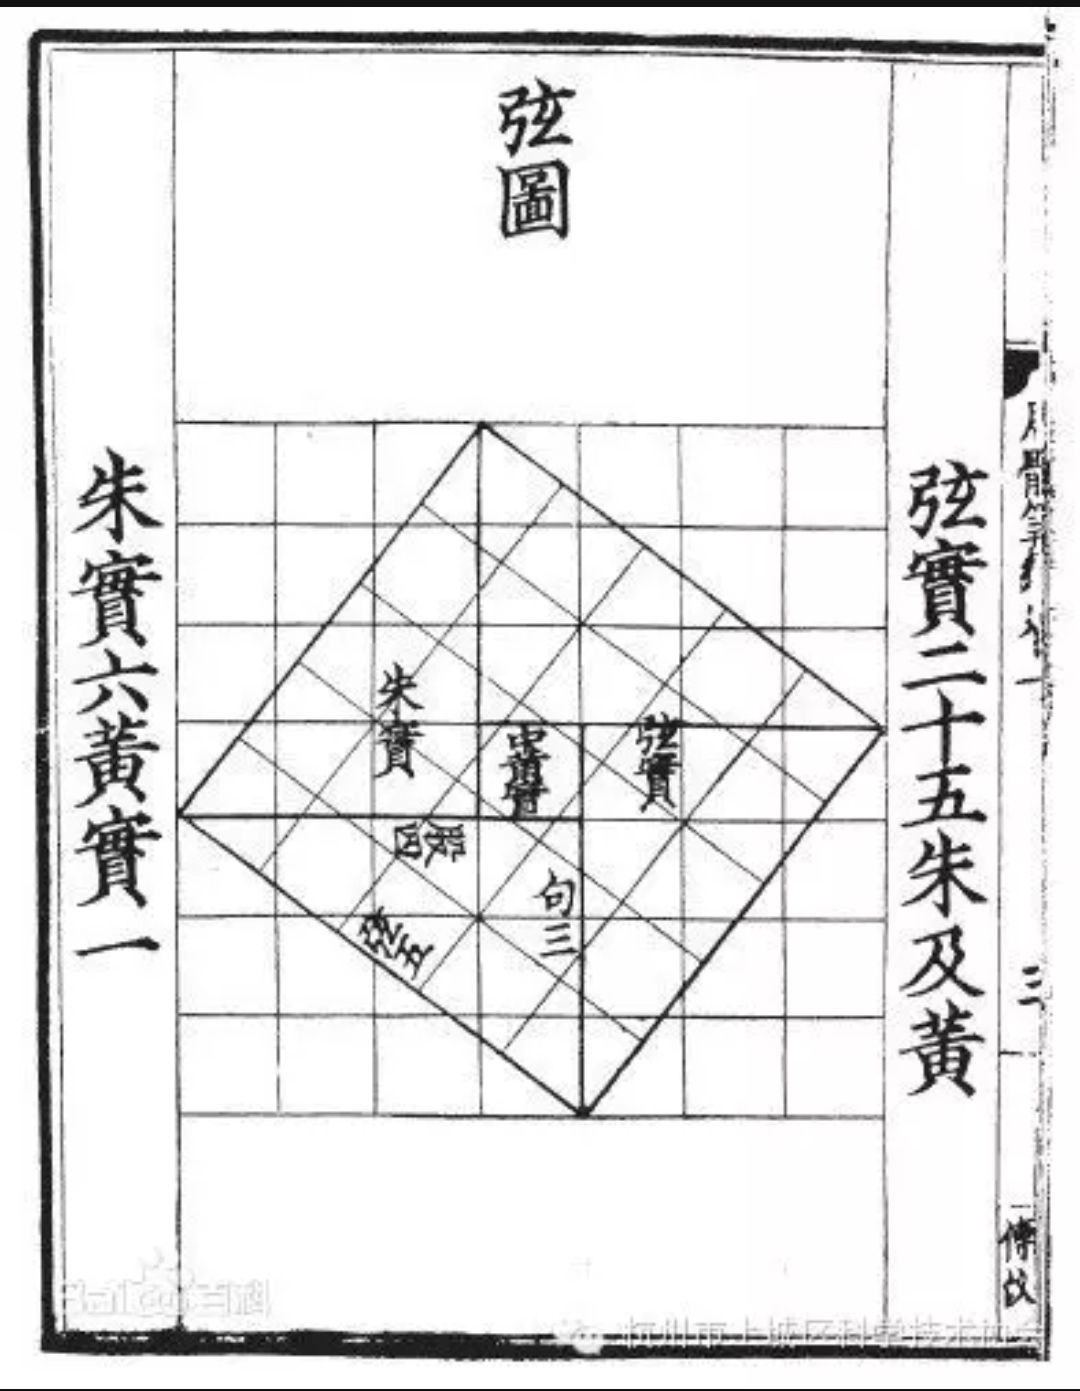 弦圖
弦實二十五朱及黃
朱實六黃實一
朱實
中黃實
弦實
股四
句三
弦五
三
Baidu百科
杭州市上城区科学技术协会